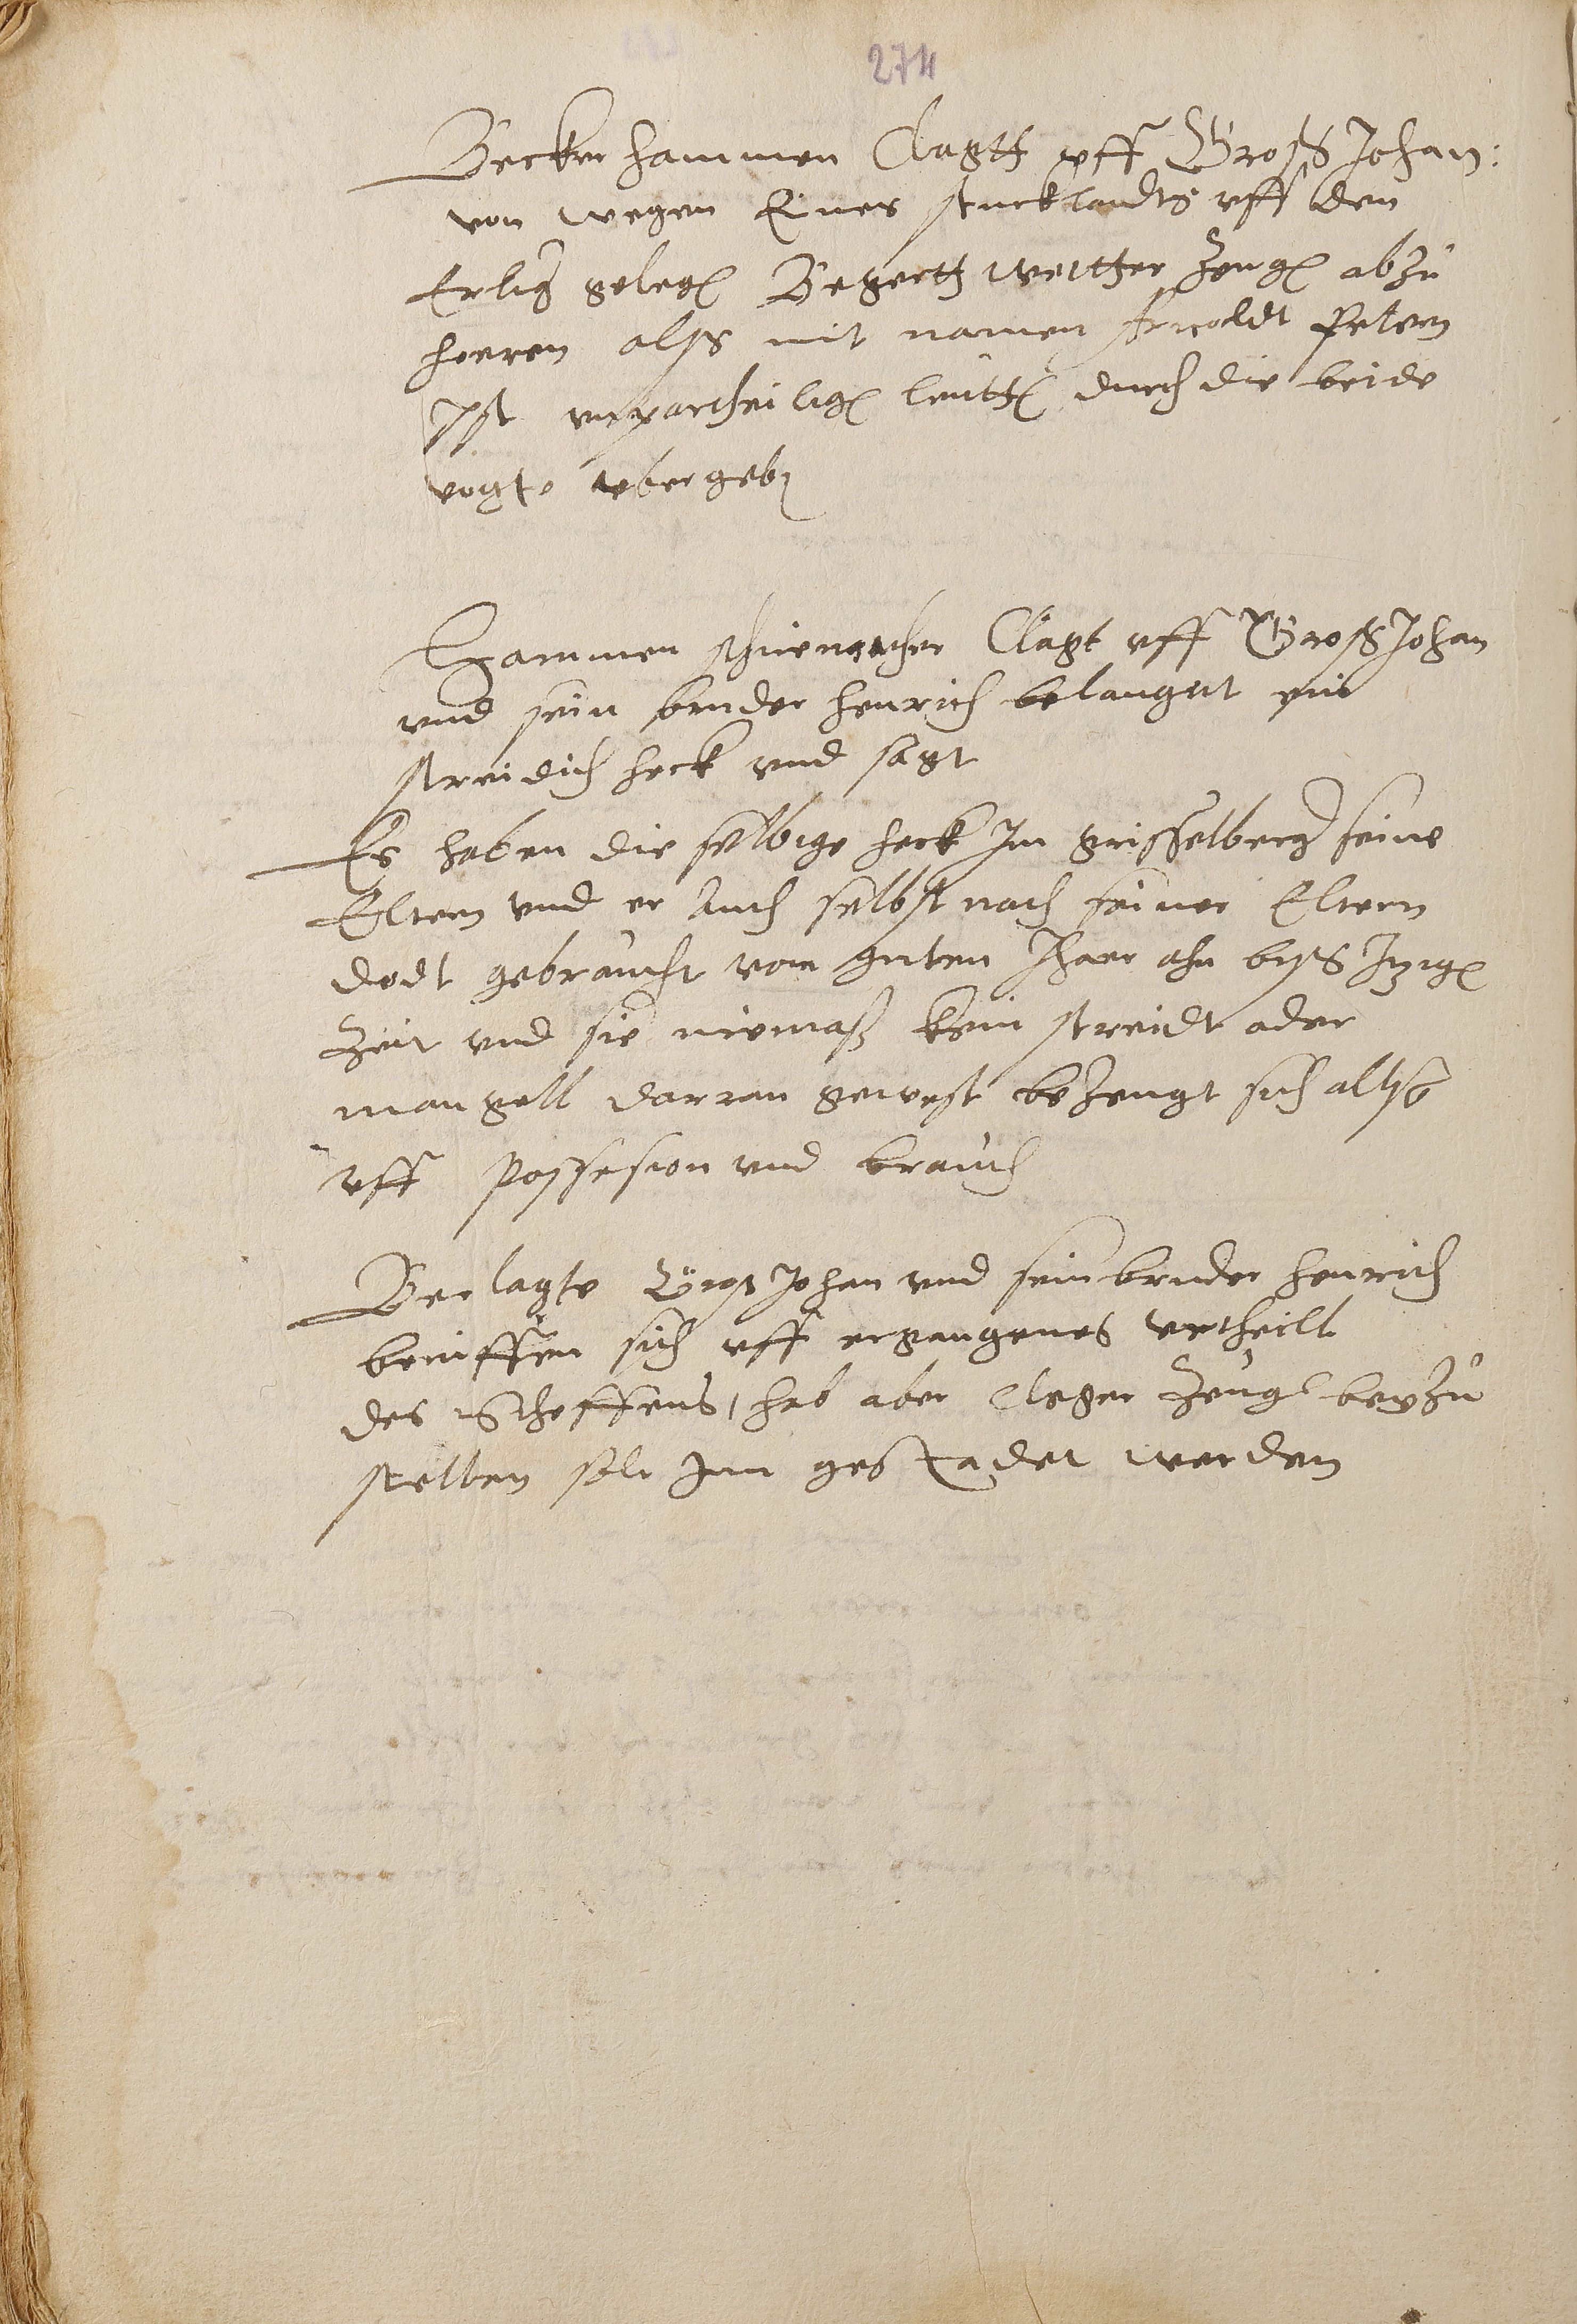 274
Becker Hammen Clagtt vff Groß Johan:
von wegen Eines stuck landts vff den
Erlig gelegen Begertt weitter Zeugen abzu
hoeren alß mit namen Arnoldt Petern
Ist unpartheiligen leutten durch die beide
vögte vbergeben
Hammen Clagt vff Groß Johan
vnd sein bruder Henrich belangent ein
streidich heck vnd sagt
Es haben die selbige heck Im grisselberg seine
Eltern vnd er Auch selbst nach seiner Eltern
dodt gebraucht von guten Jhaer ahn byß Itzigen
Zeit vnd sie niemalß kein streidt oder
mangell darran gewest beZeugt sich alß
vff Possesion vnd brauch
Beclagte Groß Johan vnd sein bruder Henrich
beruffen sich vff ergangenes vrtheill
des Scheffens, hab aber Cleger Zeugen beyZu
stellen soll Im gestadet werden